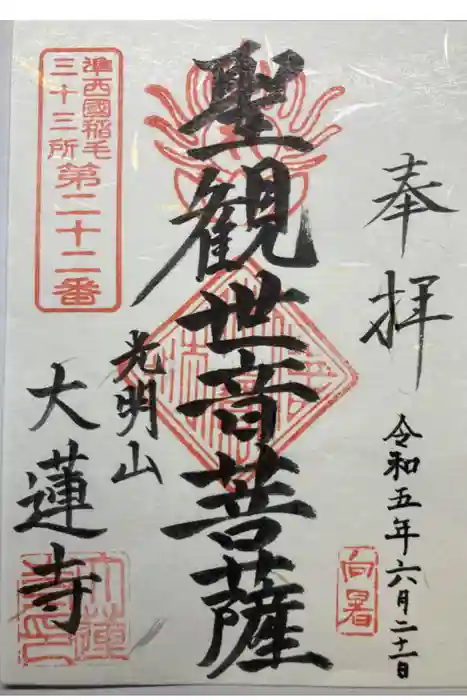 奉拝
令和五年六月二十一日
向暑
聖観世音菩薩
光明山
大蓮寺
準西國稲毛
三十三所 第二十二番